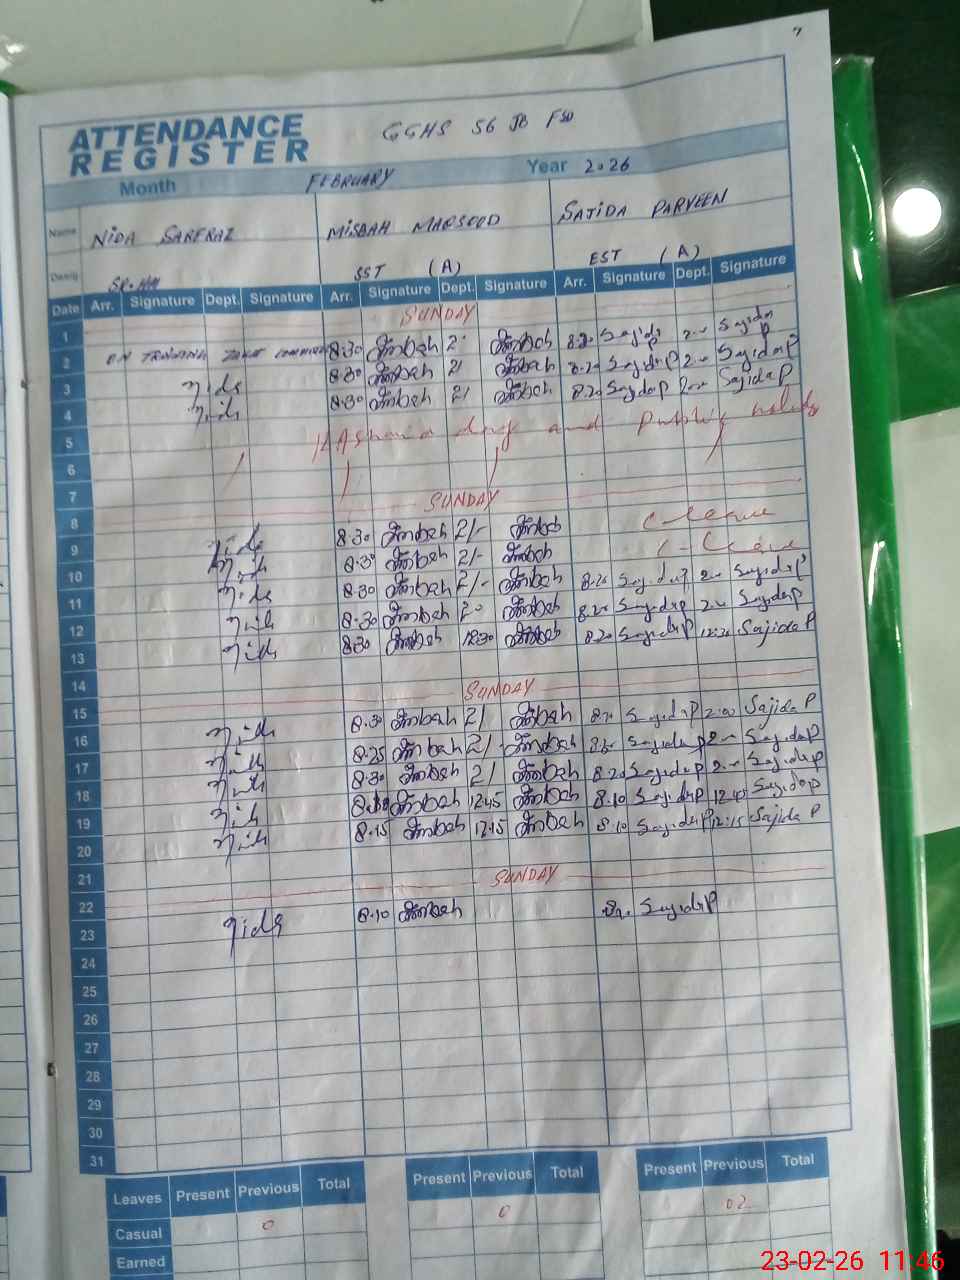 7
ATTENDANCE REGISTER GGHS 56 JB FSD
Month FEBRUARY Year 2026
Name NIDA SARFRAZ MISBAH MAQSOOD SAJIDA PARVEEN
Desig SST (A) EST (A)
Date Arr. Signature Dept. Signature Arr. Signature Dept. Signature Arr. Signature Dept. Signature
1 SUNDAY
2 8:30 2 8.20 Sajida P 2.00 Sajida P
3 Nida 8:30 2/ 8.20 Sajida P 2.00 Sajida P
4 Nida 8:30 2/ 8.20 Sajida P 2.00 Sajida P
5 Kashmir day and Public holiday
6
7
8 SUNDAY
9 Nida 8.30 2/- C-leave
10 Nida 8.30 2/- C-leave
11 Nida 8:30 2/- 8.20 Sajida P 2.00 Sajida P
12 Nida 8:30 8.20 Sajida P 2.00 Sajida P
13 Nida 8:30 12:30 8.20 Sajida P Sajida P
14
15 SUNDAY
16 Nida 8.30 2/ Sajida P 2:00 Sajida P
17 Nida 8:25 2/- Sajida P 2.00 Sajida P
18 Nida 8:30 2/ 8.20 Sajida P 2.00 Sajida P
19 Nida 12:45 8.10 Sajida P 12:45 Sajida P
20 Nida 8:15 12:15 8.10 Sajida P 12:15 Sajida P
21
22 SUNDAY
23 Nida 8.10 Sajida P
24
25
26
27
28
29
30
31
Leaves Present Previous Total Present Previous Total Present Previous Total
Casual 0 0 02
Earned
23-02-26 11:46